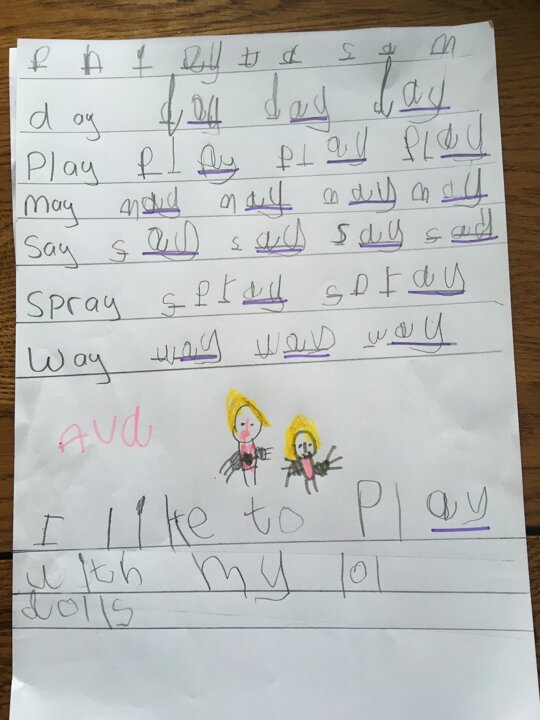 day day day day
Play play play play
May may may may may
Say say say say say
Spray spray spray
Way way way way
Ava
I like to play
with my lol
dolls